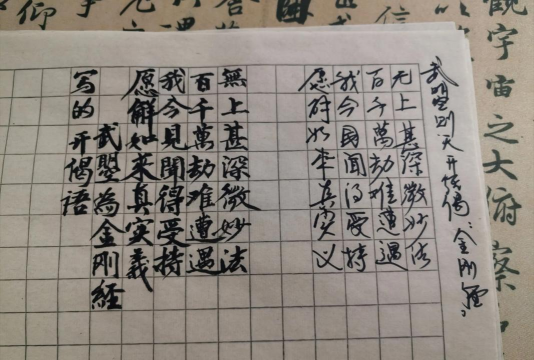 觀宇宙之大府察
武曌则天开经偈：金刚经。
无上甚深微妙法
百千萬劫难遭遇
我今见闻得受持
愿解如来真实义
無上甚深微妙法
百千萬劫难遭遇
我今見聞得受持
愿解如来真实義
武曌為金刚經
写的开偈语